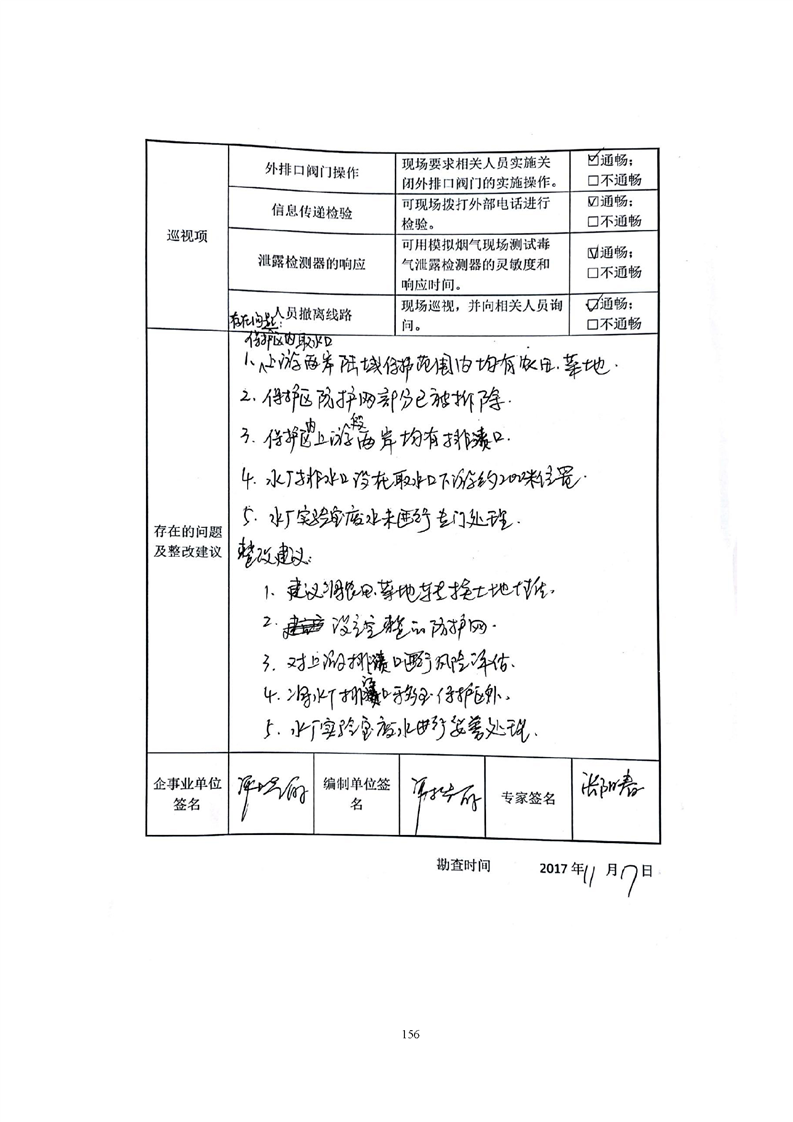 巡视项
外排口阀门操作
现场要求相关人员实施关
闭外排口阀门的实施操作。
☑通畅;
□不通畅
信息传递检验
可现场拨打外部电话进行
检验。
☑通畅;
□不通畅
泄露检测器的响应
可用模拟烟气现场测试毒
气泄露检测器的灵敏度和
响应时间。
☑通畅;
□不通畅
人员撤离线路
现场巡视，并向相关人员询
问。
☑通畅;
□不通畅
存在的问题
及整改建议
存在问题:
保护区内取水口
1、上游两岸陆域保护范围内均有农田、菜地.
2、保护区防护网部分已被拆除.
3、保护区内上游段两岸均有排渍口.
4、水厂排水口设在取水口下游约200米位置.
5、水厂实验室废水未进行专门处理.
整改建议:
1、建议将农田、菜地
2、设立完整的防护网.
3、对上游排渍口进行风险评估.
4、将水厂排口移至保护区外.
5、水厂实验室废水进行妥善处理.
企事业单位
签名
编制单位签
名
专家签名
勘查时间 2017年11月7日
156